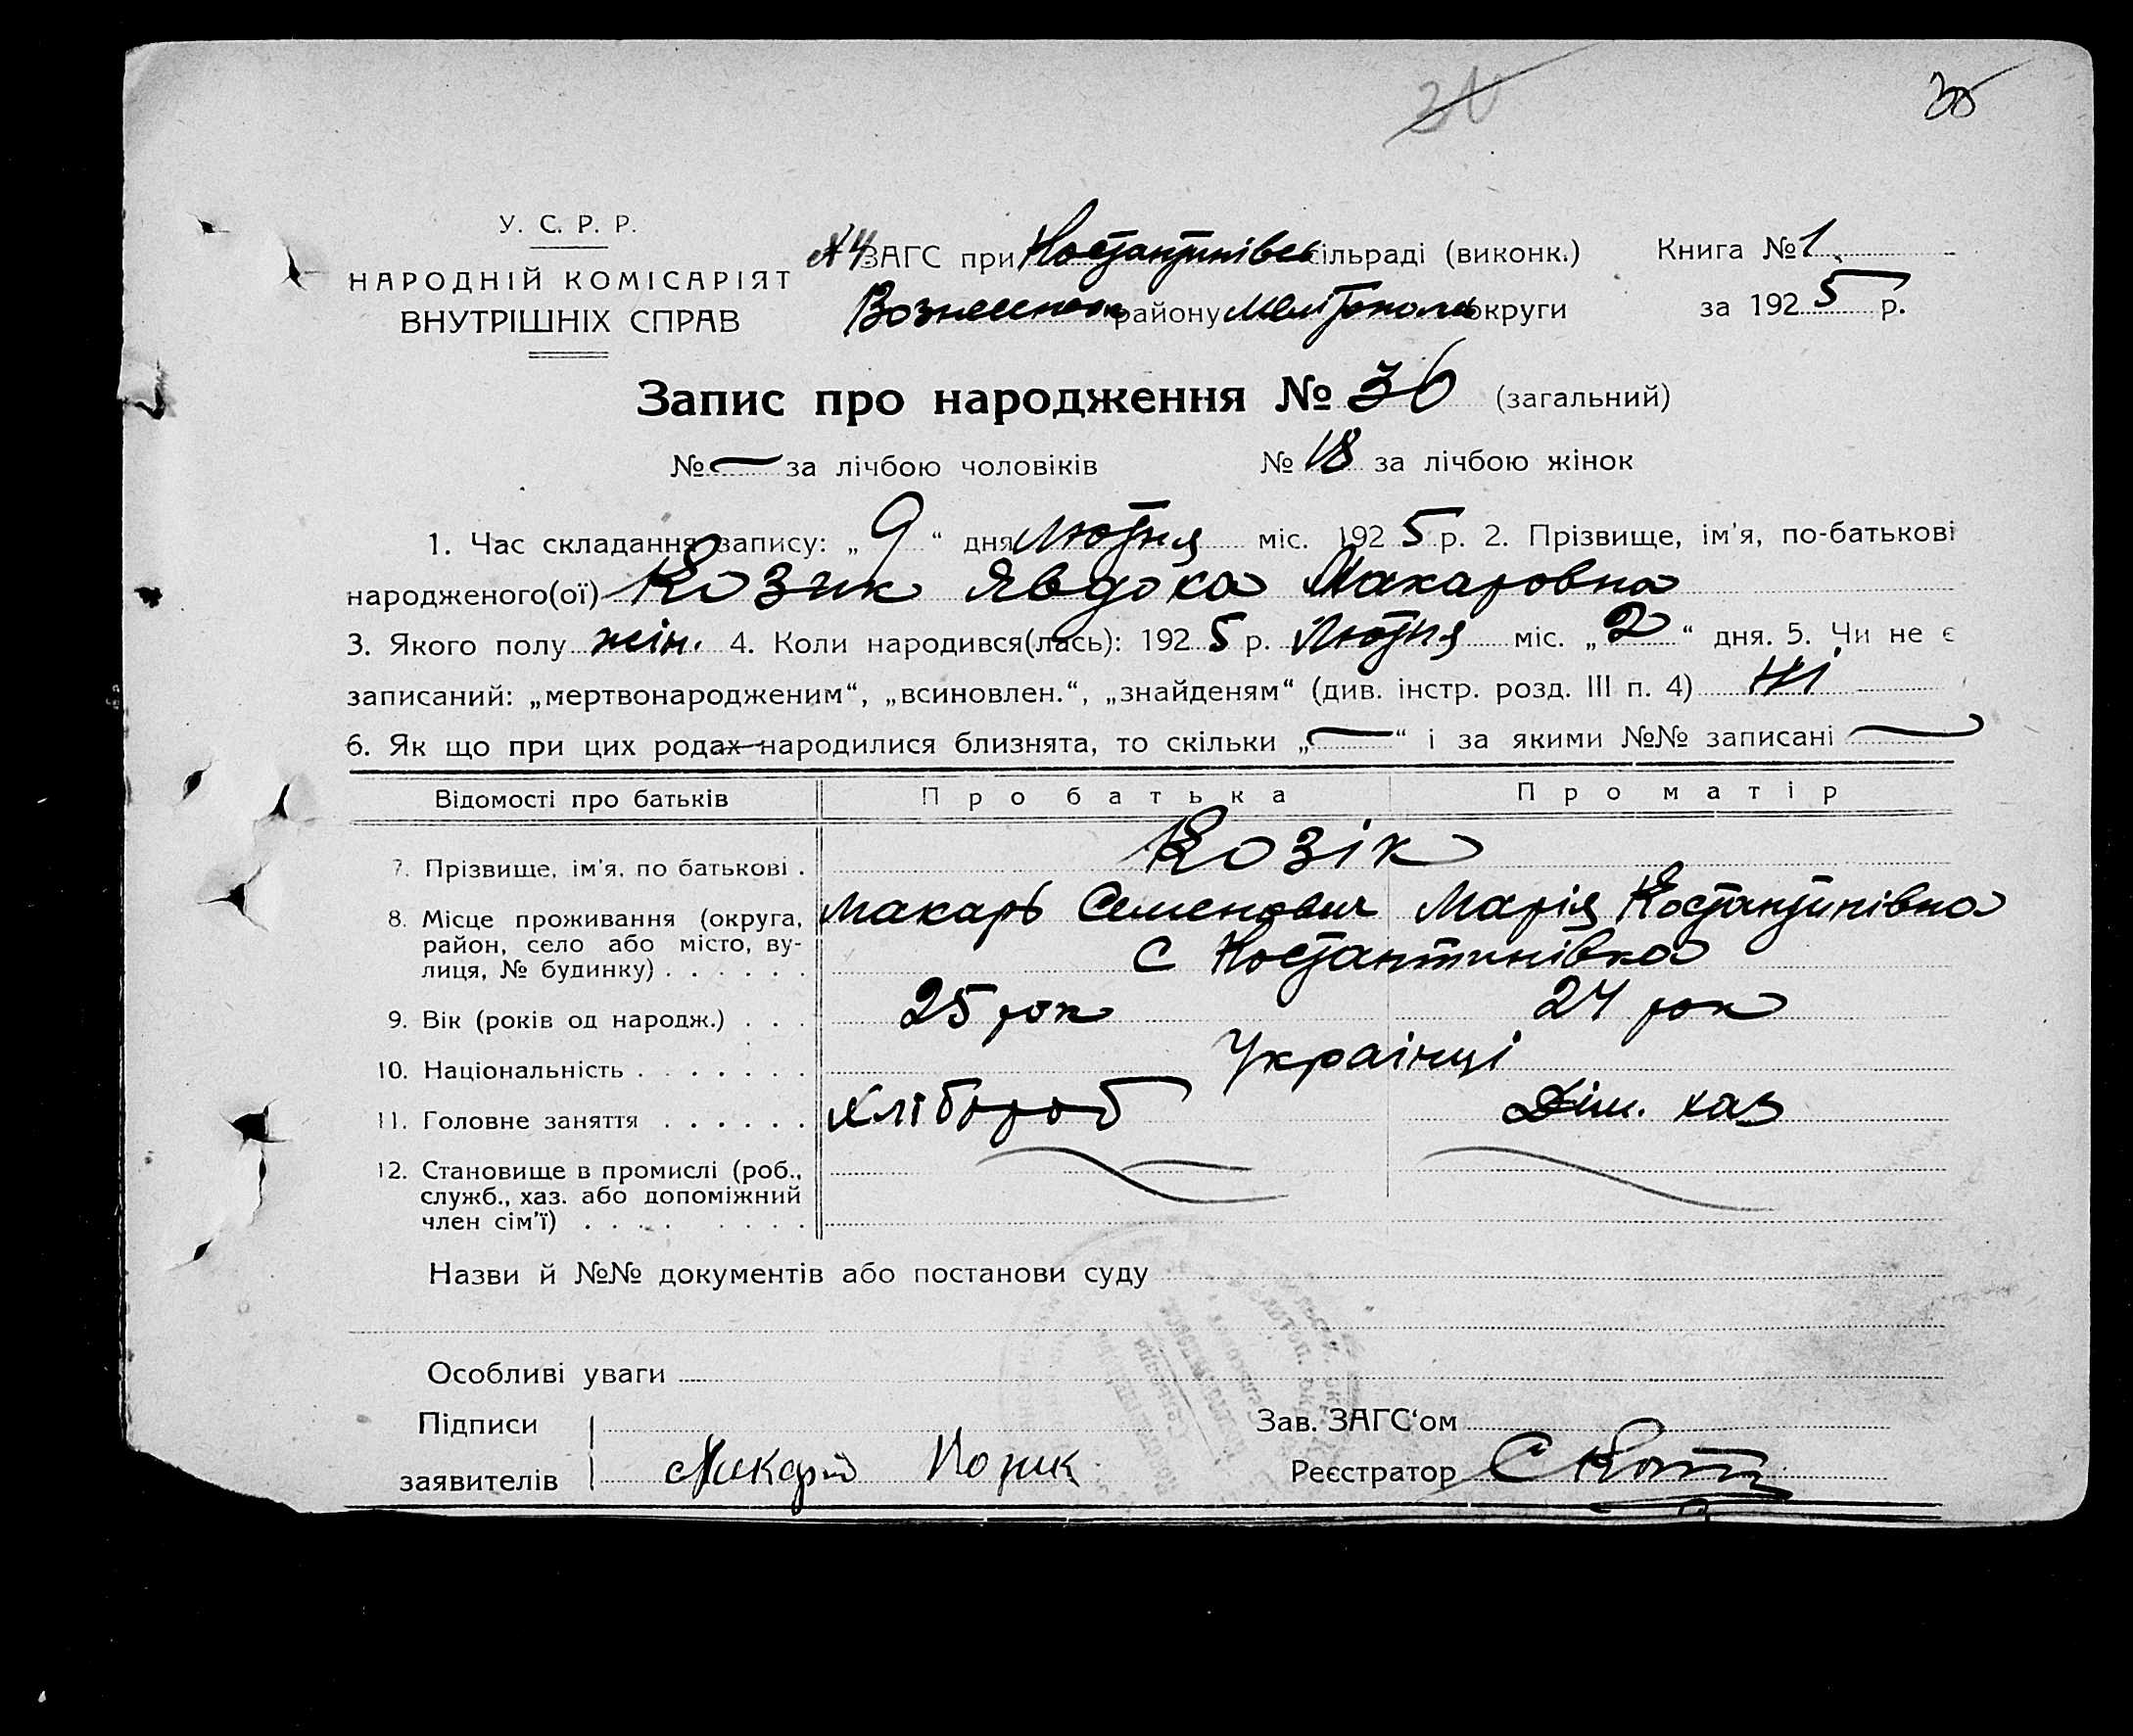 30
У. С. Р. Р.
НАРОДНІЙ КОМІСАРІЯТ
ВНУТРІШНІХ СПРАВ
ЗАГС при Костянтинівск сільраді (виконк.) Книга № 1
Вознесенськ району Мелітопольс округи за 1925 р.
Запис про народження № 36 (загальний)
№ — за лічбою чоловіків № 18 за лічбою жінок
1. Час складання запису: „9“ дня Лютня міс. 1925 р. 2. Прізвище, ім'я, по-батькові
народженого(ої) Козик Явдоха Макаровна
3. Якого полу жін. 4. Коли народився(лась): 1925 р. Лютня міс. „2“ дня. 5. Чи не є
записаний: „мертвонародженим“, „всиновлен.“, „знайденям“ (див. інстр. розд. III п. 4) Ні
6. Як що при цих родах народилися близнята, то скільки „—“ і за якими №№ записані —
Відомості про батьків Про батька Про матір
7. Прізвище, ім'я, по батькові . Козік
Макарь Семенович Марія Костянтинівна
8. Місце проживання (округа, район, село або місто, ву-
лиця, № будинку) . . . . . . С Костянтинівка
9. Вік (років од народж.) . . . 25 рок 24 рок
10. Національність . . . . . . . Українці
11. Головне заняття . . . . . . Хлібороб Дім. хаз
12. Становище в промислі (роб.,
служб., хаз. або допоміжний
член сім'ї) . . . . . . . .
Назви й №№ документів або постанови суду
Особливі уваги
Підписи Зав. ЗАГС'ом
заявителів Макарій Козик Реєстратор